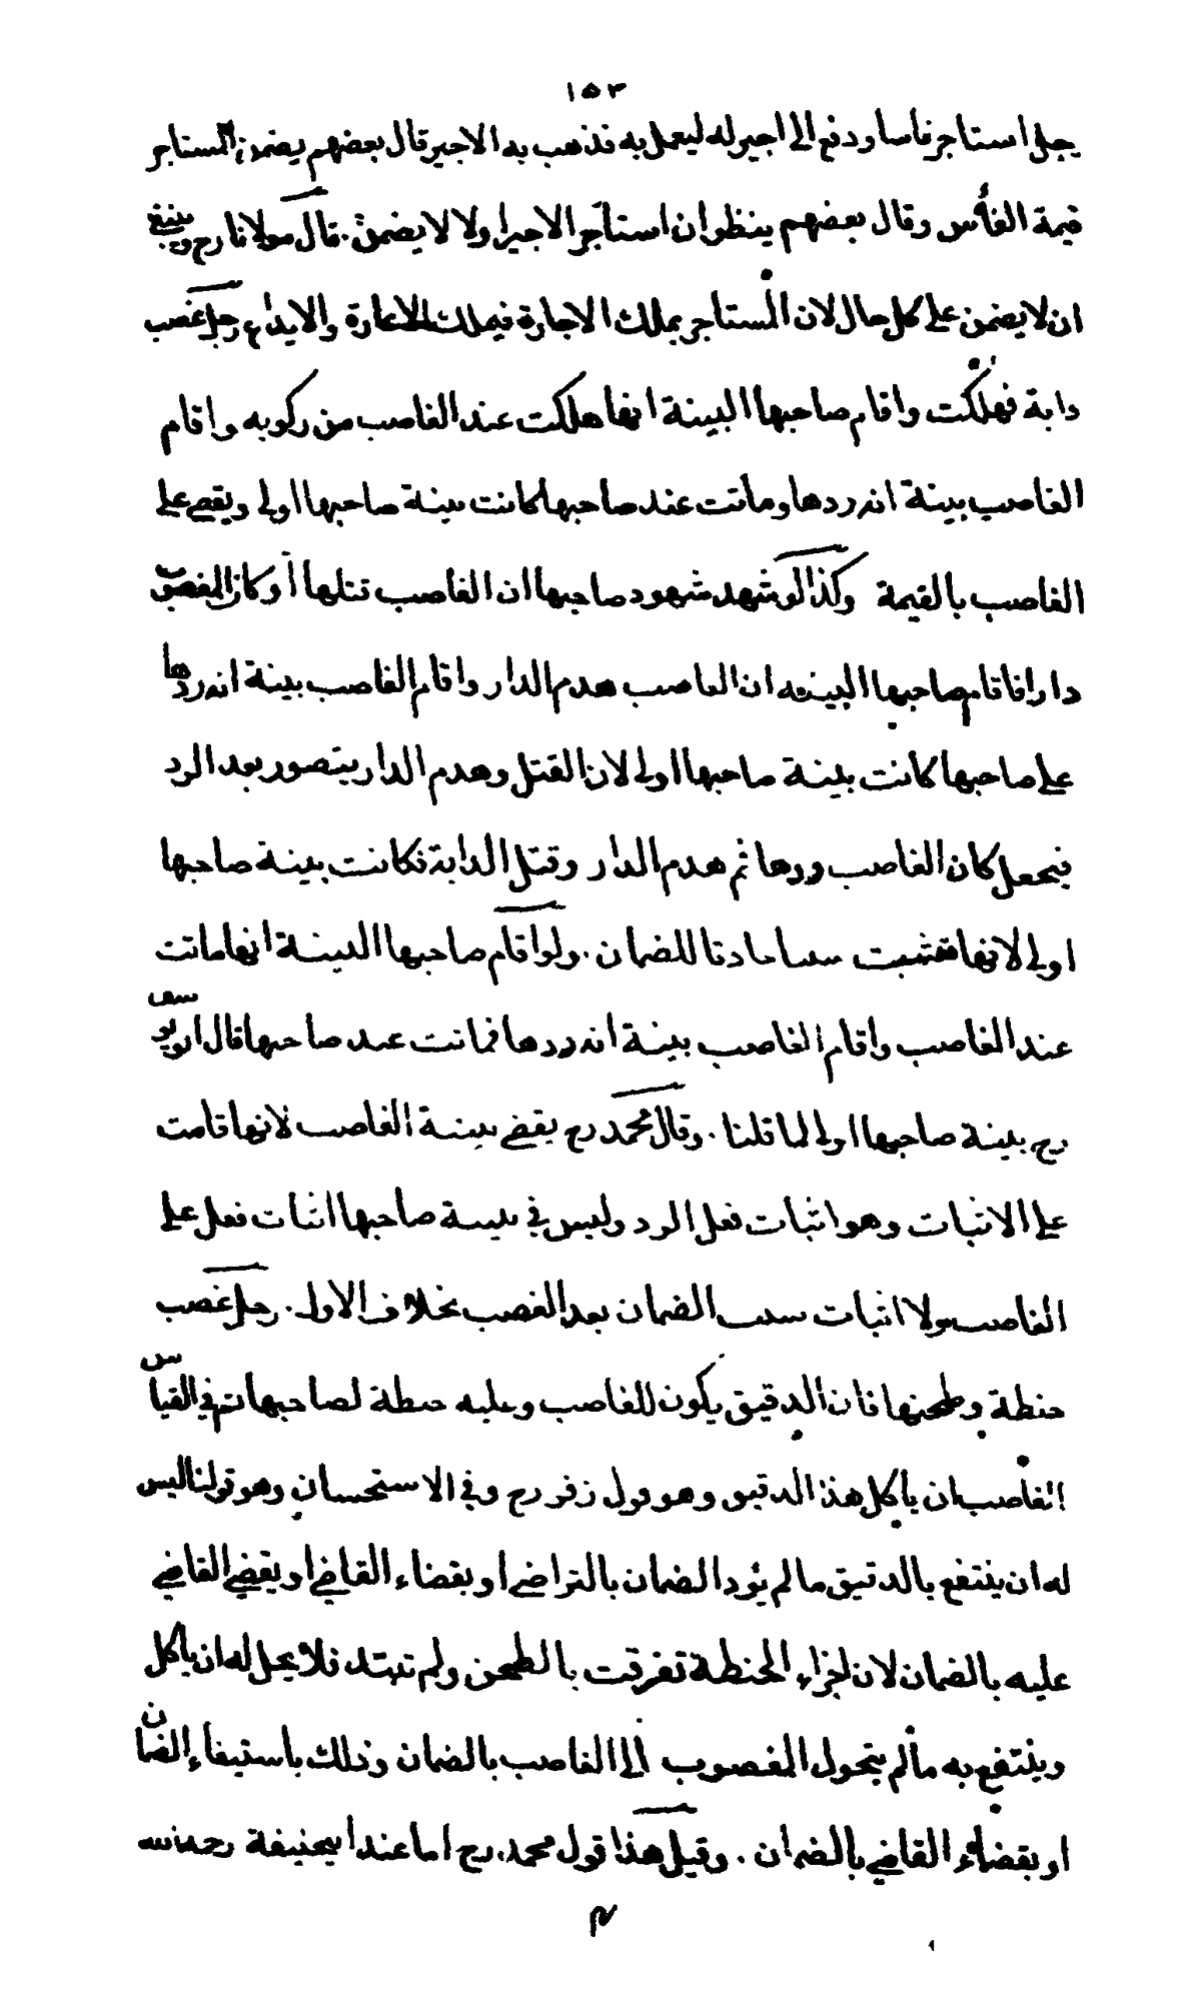 ١٥٣
رجل استاجر فاسا ودفع الى اجير له ليعمل به فذهب به الاجير قال بعضهم يضمن المستاجر
قيمة الفأس وقال بعضهم ينظر ان استاجر الاجير اولا لا يضمن . قال مولانا رح وينبغي
ان لا يضمن على كل حال لان المستاجر يملك الاجارة فيملك الاعارة والايداع رجل غصب
دابة فهلكت واقام صاحبها البينة انها هلكت عند الغاصب من ركوبه واقام
الغاصب بينة انه ردها وماتت عند صاحبها كانت بينة صاحبها اولى ويقضى على
الغاصب بالقيمة وكذا لو شهد شهود صاحبها ان الغاصب قتلها او كان المغصوب
دارا فاقام صاحبها البينة ان الغاصب هدم الدار واقام الغاصب بينة انه ردها
على صاحبها كانت بينة صاحبها اولى لان القتل وهدم الدار يتصور بعد الرد
فيجعل كان الغاصب ردها ثم هدم الدار وقتل الدابة فكانت بينة صاحبها
اولى لانها تثبت سببا حادثا للضمان . ولو اقام صاحبها البينة انها ماتت
عند الغاصب واقام الغاصب بينة انه ردها فماتت عند صاحبها قال ابو يوسف
رح بينة صاحبها اولى لما قلنا . وقال محمد رح يقضى ببينة الغاصب لانها قامت
على الاثبات وهو اثبات فعل الرد وليس في بينة صاحبها اثبات فعل على
الغاصب ولا اثبات سبب الضمان بعد الغصب بخلاف الاول . رجل غصب
حنطة وطحنها فان الدقيق يكون للغاصب وعليه حنطة لصاحبها ثم في القياس
الغاصب ان يأكل هذا الدقيق وهو قول زفر رح وفي الاستحسان وهو قولنا ليس
له ان ينتفع بالدقيق ما لم يؤد الضمان بالتراضي او بقضاء القاضي او يقضي القاضي
عليه بالضمان لان اجزاء الحنطة تفرقت بالطحن ولم تتبدل فلا يحل له ان يأكل
وينتفع به مالم يتحول المغصوب الى الغاصب بالضمان وذلك باستيفاء الضمان
او بقضاء القاضي بالضمان . وقيل هذا قول محمد رح اما عند ابيحنيفة رحمه الله